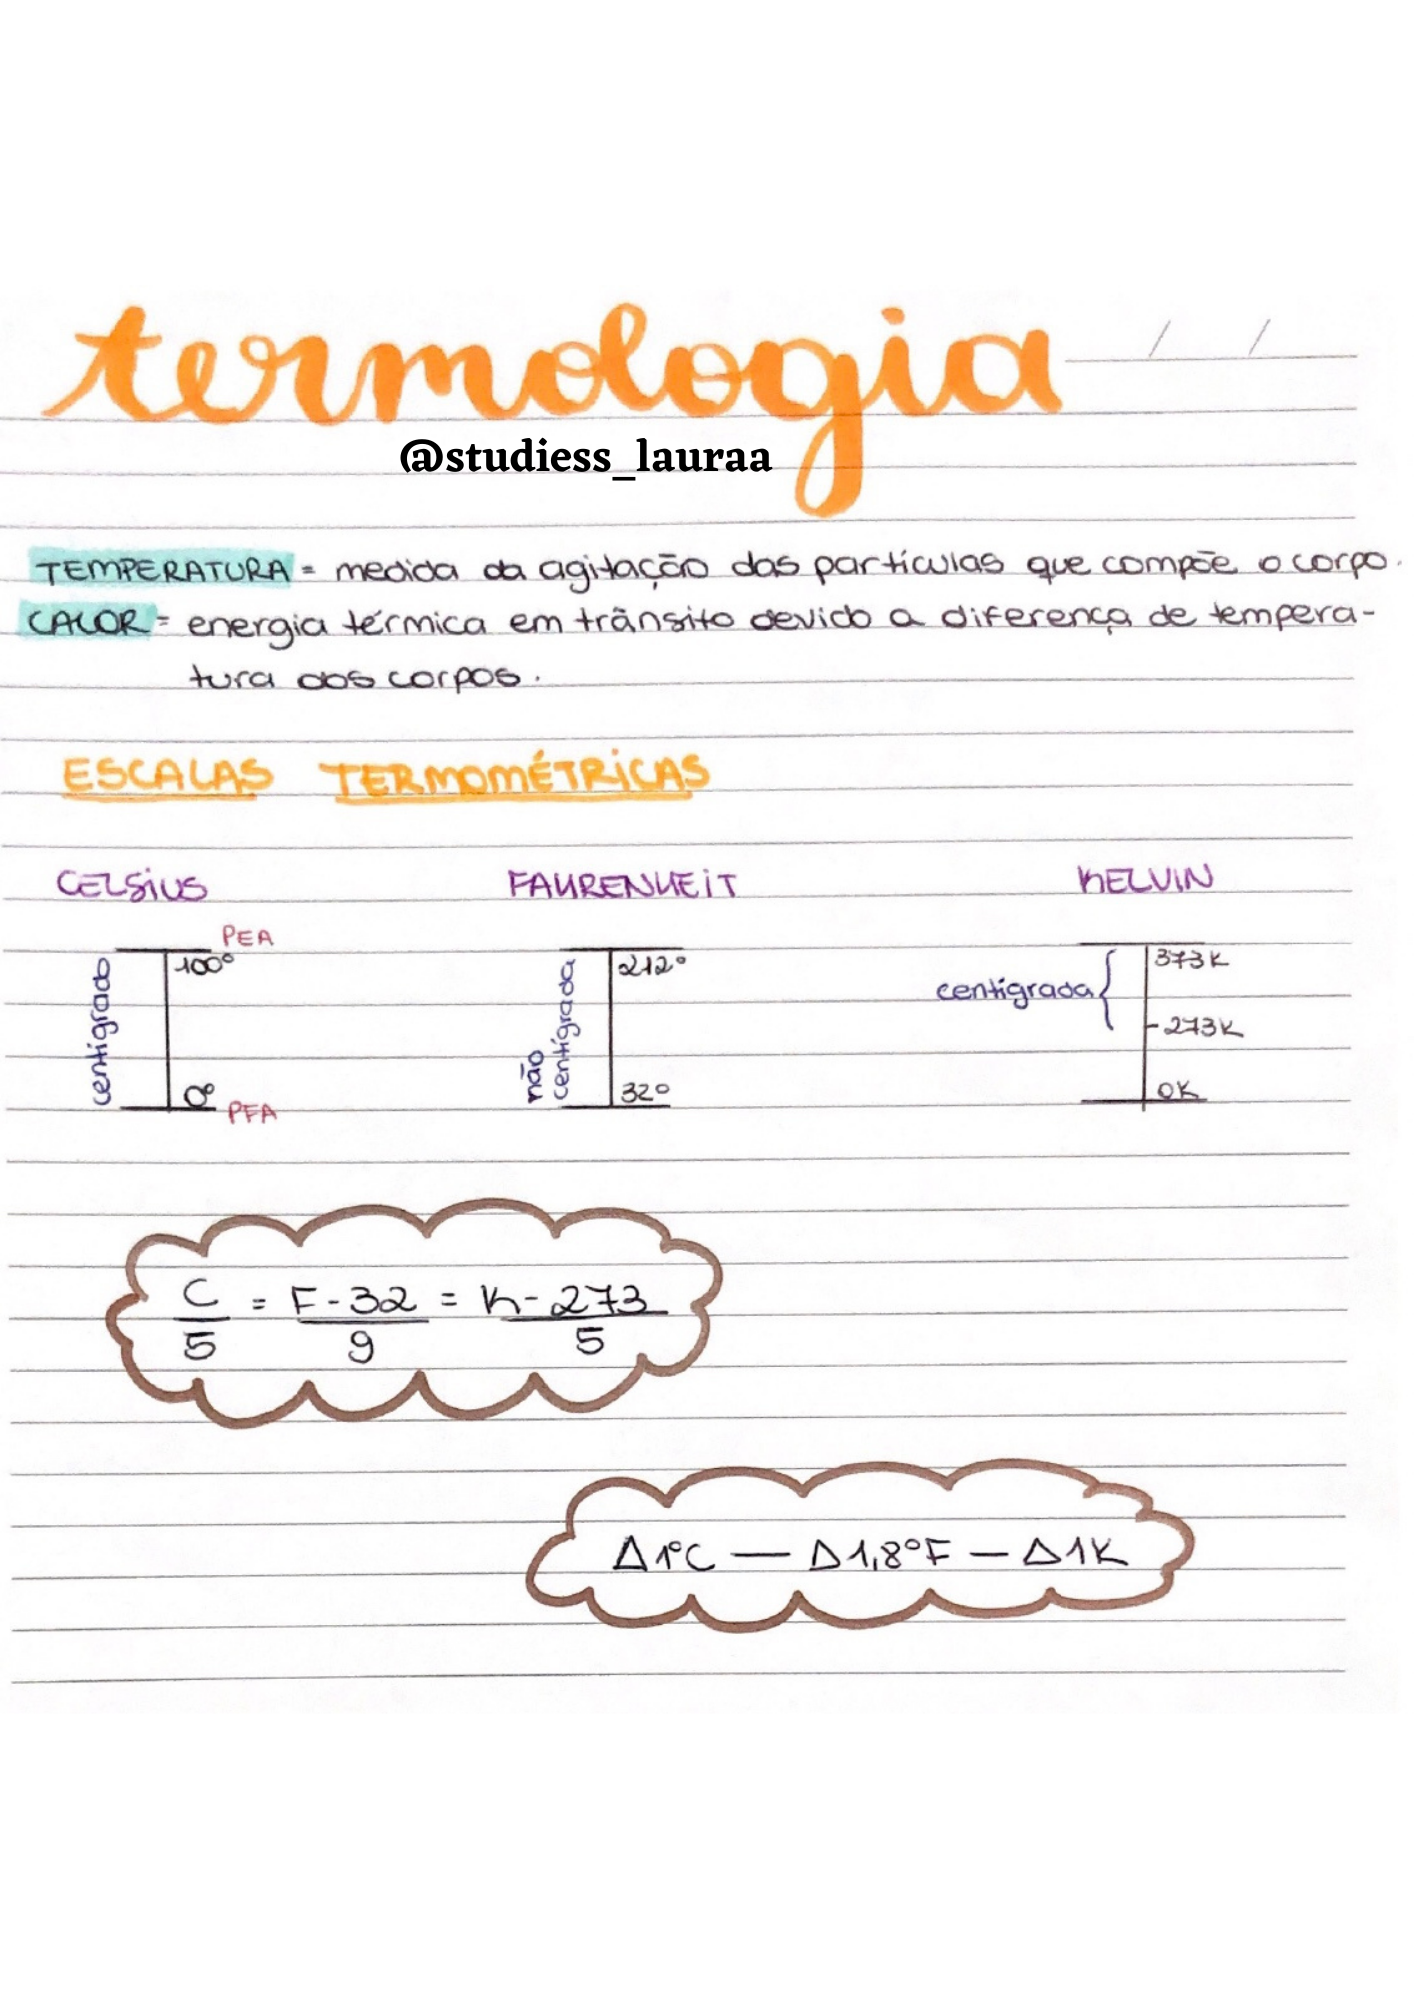 termologia
/ /
@studiess_lauraa
TEMPERATURA = medida da agitação das partículas que compõe o corpo.
CALOR = energia térmica em trânsito devido a diferença de tempera-
tura dos corpos.
ESCALAS TERMOMÉTRICAS
CELSIUS FAHRENHEIT KELVIN
PEA
100° 212° 373K
centigrado não centígrada centígrada
-273K
0° 32° 0K
PFA
C/5 = F-32/9 = K-273/5
Δ1°C — Δ1,8°F — Δ1K